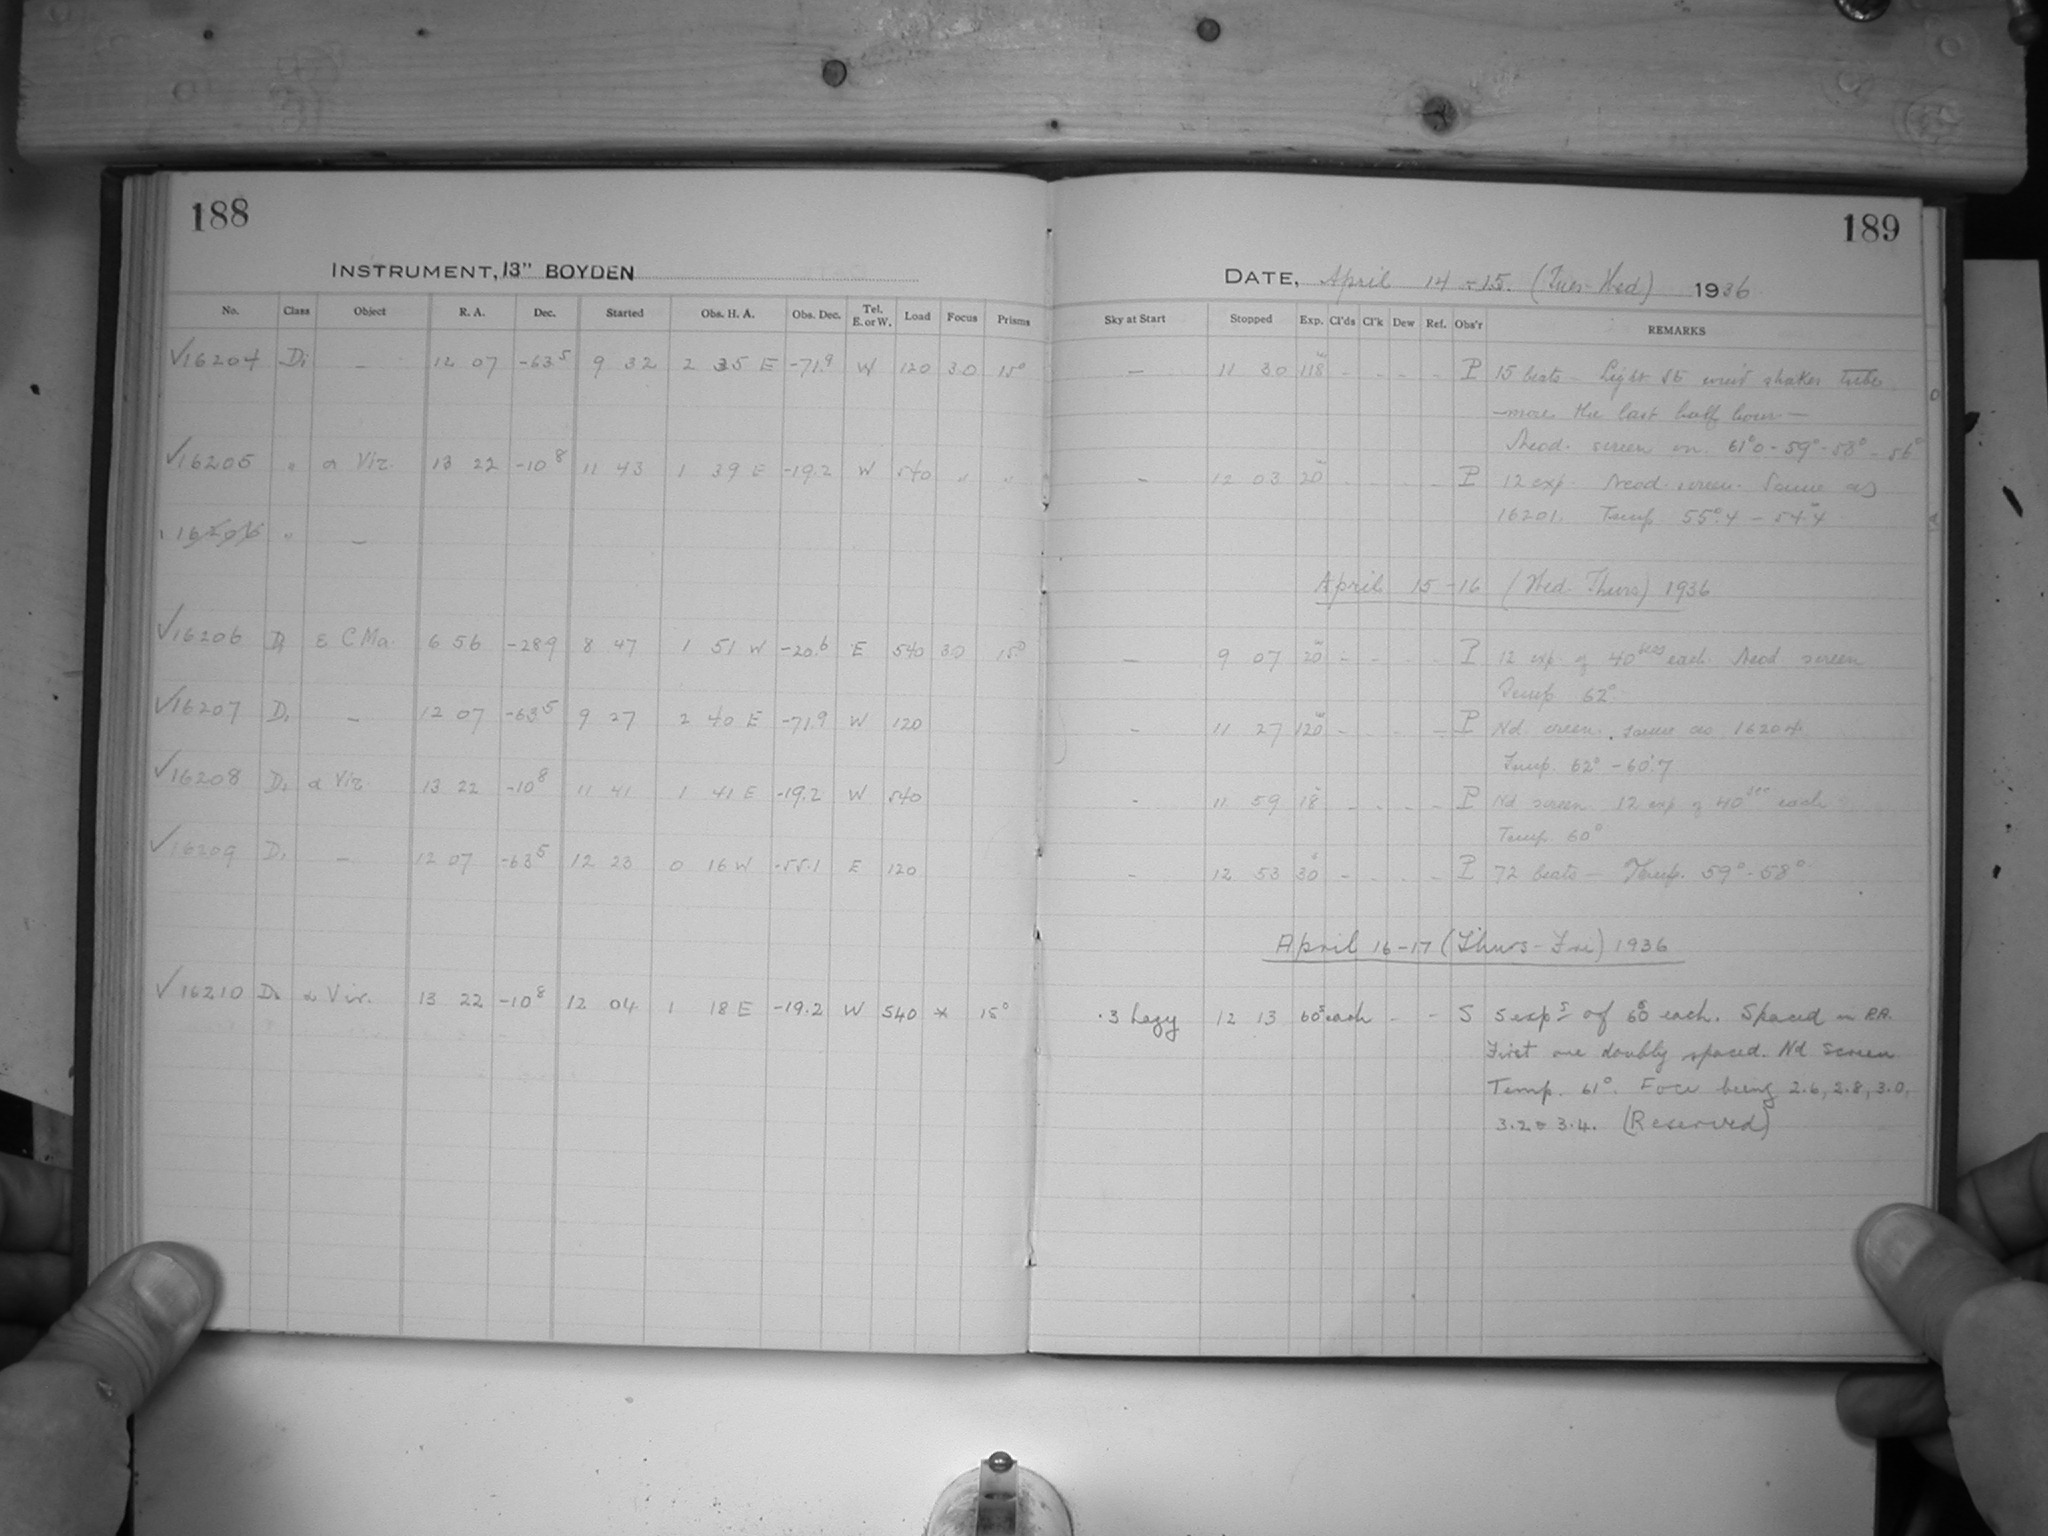 188
INSTRUMENT, 13" BOYDEN
No. Class Object R. A. Dec. Started Obs. H. A. Obs. Dec. Tel. E. or W. Load Focus Prisms
√16204 Di — 12 07 -63⁵ 9 32 2 35 E -71.9 W 120 3.0 15°
√16205 " α Vir. 13 22 -10⁸ 11 43 1 39 E -19.2 W 540 " "
16206 " —
√16206 Di ε C Ma. 6 56 -289 8 47 1 51 W -20.6 E 540 3.0 15°
√16207 Di — 12 07 -63⁵ 9 27 2 40 E -71.9 W 120
√16208 Di α Vir. 13 22 -10⁸ 11 41 1 41 E -19.2 W 540
√16209 Di — 12 07 -63⁵ 12 23 0 16 W -55.1 E 120
√16210 Di α Vir. 13 22 -10⁸ 12 04 1 18 E -19.2 W 540 * 15°
189
DATE, April 14-15. (Tues-Wed) 1936
Sky at Start Stopped Exp. Cl'ds Cl'k Dew Ref. Obs'r REMARKS
— 11 30 118ᵐ - - - - P 15 beats - Light shakes tube
— more the last half hour —
Neod. screen on. 61°0 - 59° - 58° - 56°
- 12 03 20ᵐ - - - - P 12 exp. Neod. screen. Same as
16201. Temp 55°.4 - 54°.4
April 15-16 (Wed-Thurs) 1936
— 9 07 20ᵐ - - - - P 12 exp of 40 secs each. Neod screen
Temp 62°
- 11 27 120ᵐ - - - - P Nd screen. same as 16204.
Temp. 62° - 60°.7
- 11 59 18 - - - - P Nd screen 12 exp of 40 sec each
Temp 60°
- 12 53 30 - - - - P 72 beats — Temp. 59° - 58°
April 16-17 (Thurs-Fri) 1936
.3 hazy 12 13 60ˢ each - - S 5 expˢ of 60ˢ each. Spaced in RA.
First one doubly spaced. Nd screen
Temp. 61°. Foci being 2.6, 2.8, 3.0,
3.2 & 3.4. (Reserved)